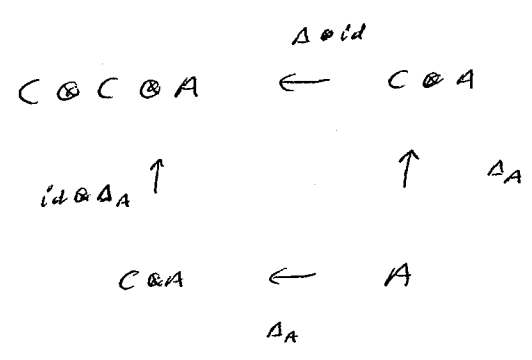 Δ ⊗ id
C ⊗ C ⊗ A ← C ⊗ A
id ⊗ Δ_A ↑ ↑ Δ_A
C ⊗ A ← A
Δ_A